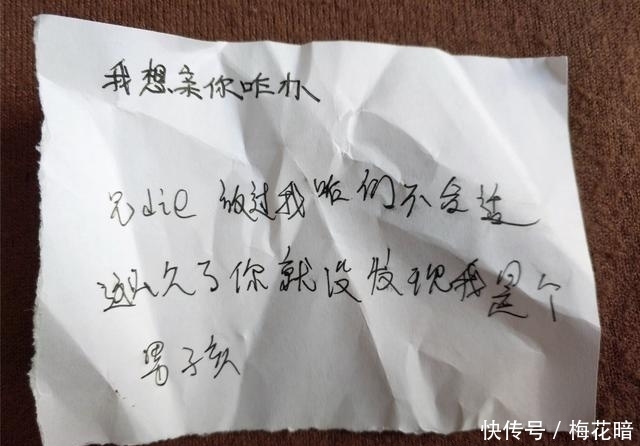 我想亲你咋办
兄die 放过我咱们不合适
这么久了你就没发现我是个
男子孩
快传号／梅花暗